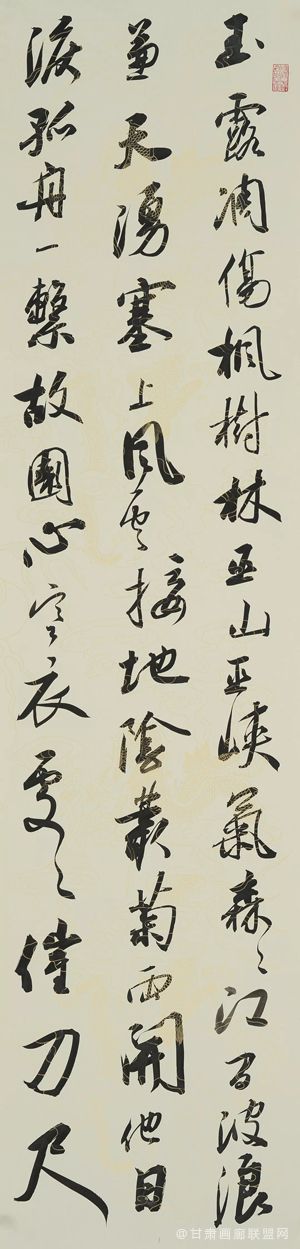 玉露凋傷楓樹林巫山巫峽氣森〻江間波浪
兼天湧塞上風雲接地陰叢菊兩開他日
淚孤舟一繫故園心寒衣處〻催刀尺
@甘肃画廊联盟网